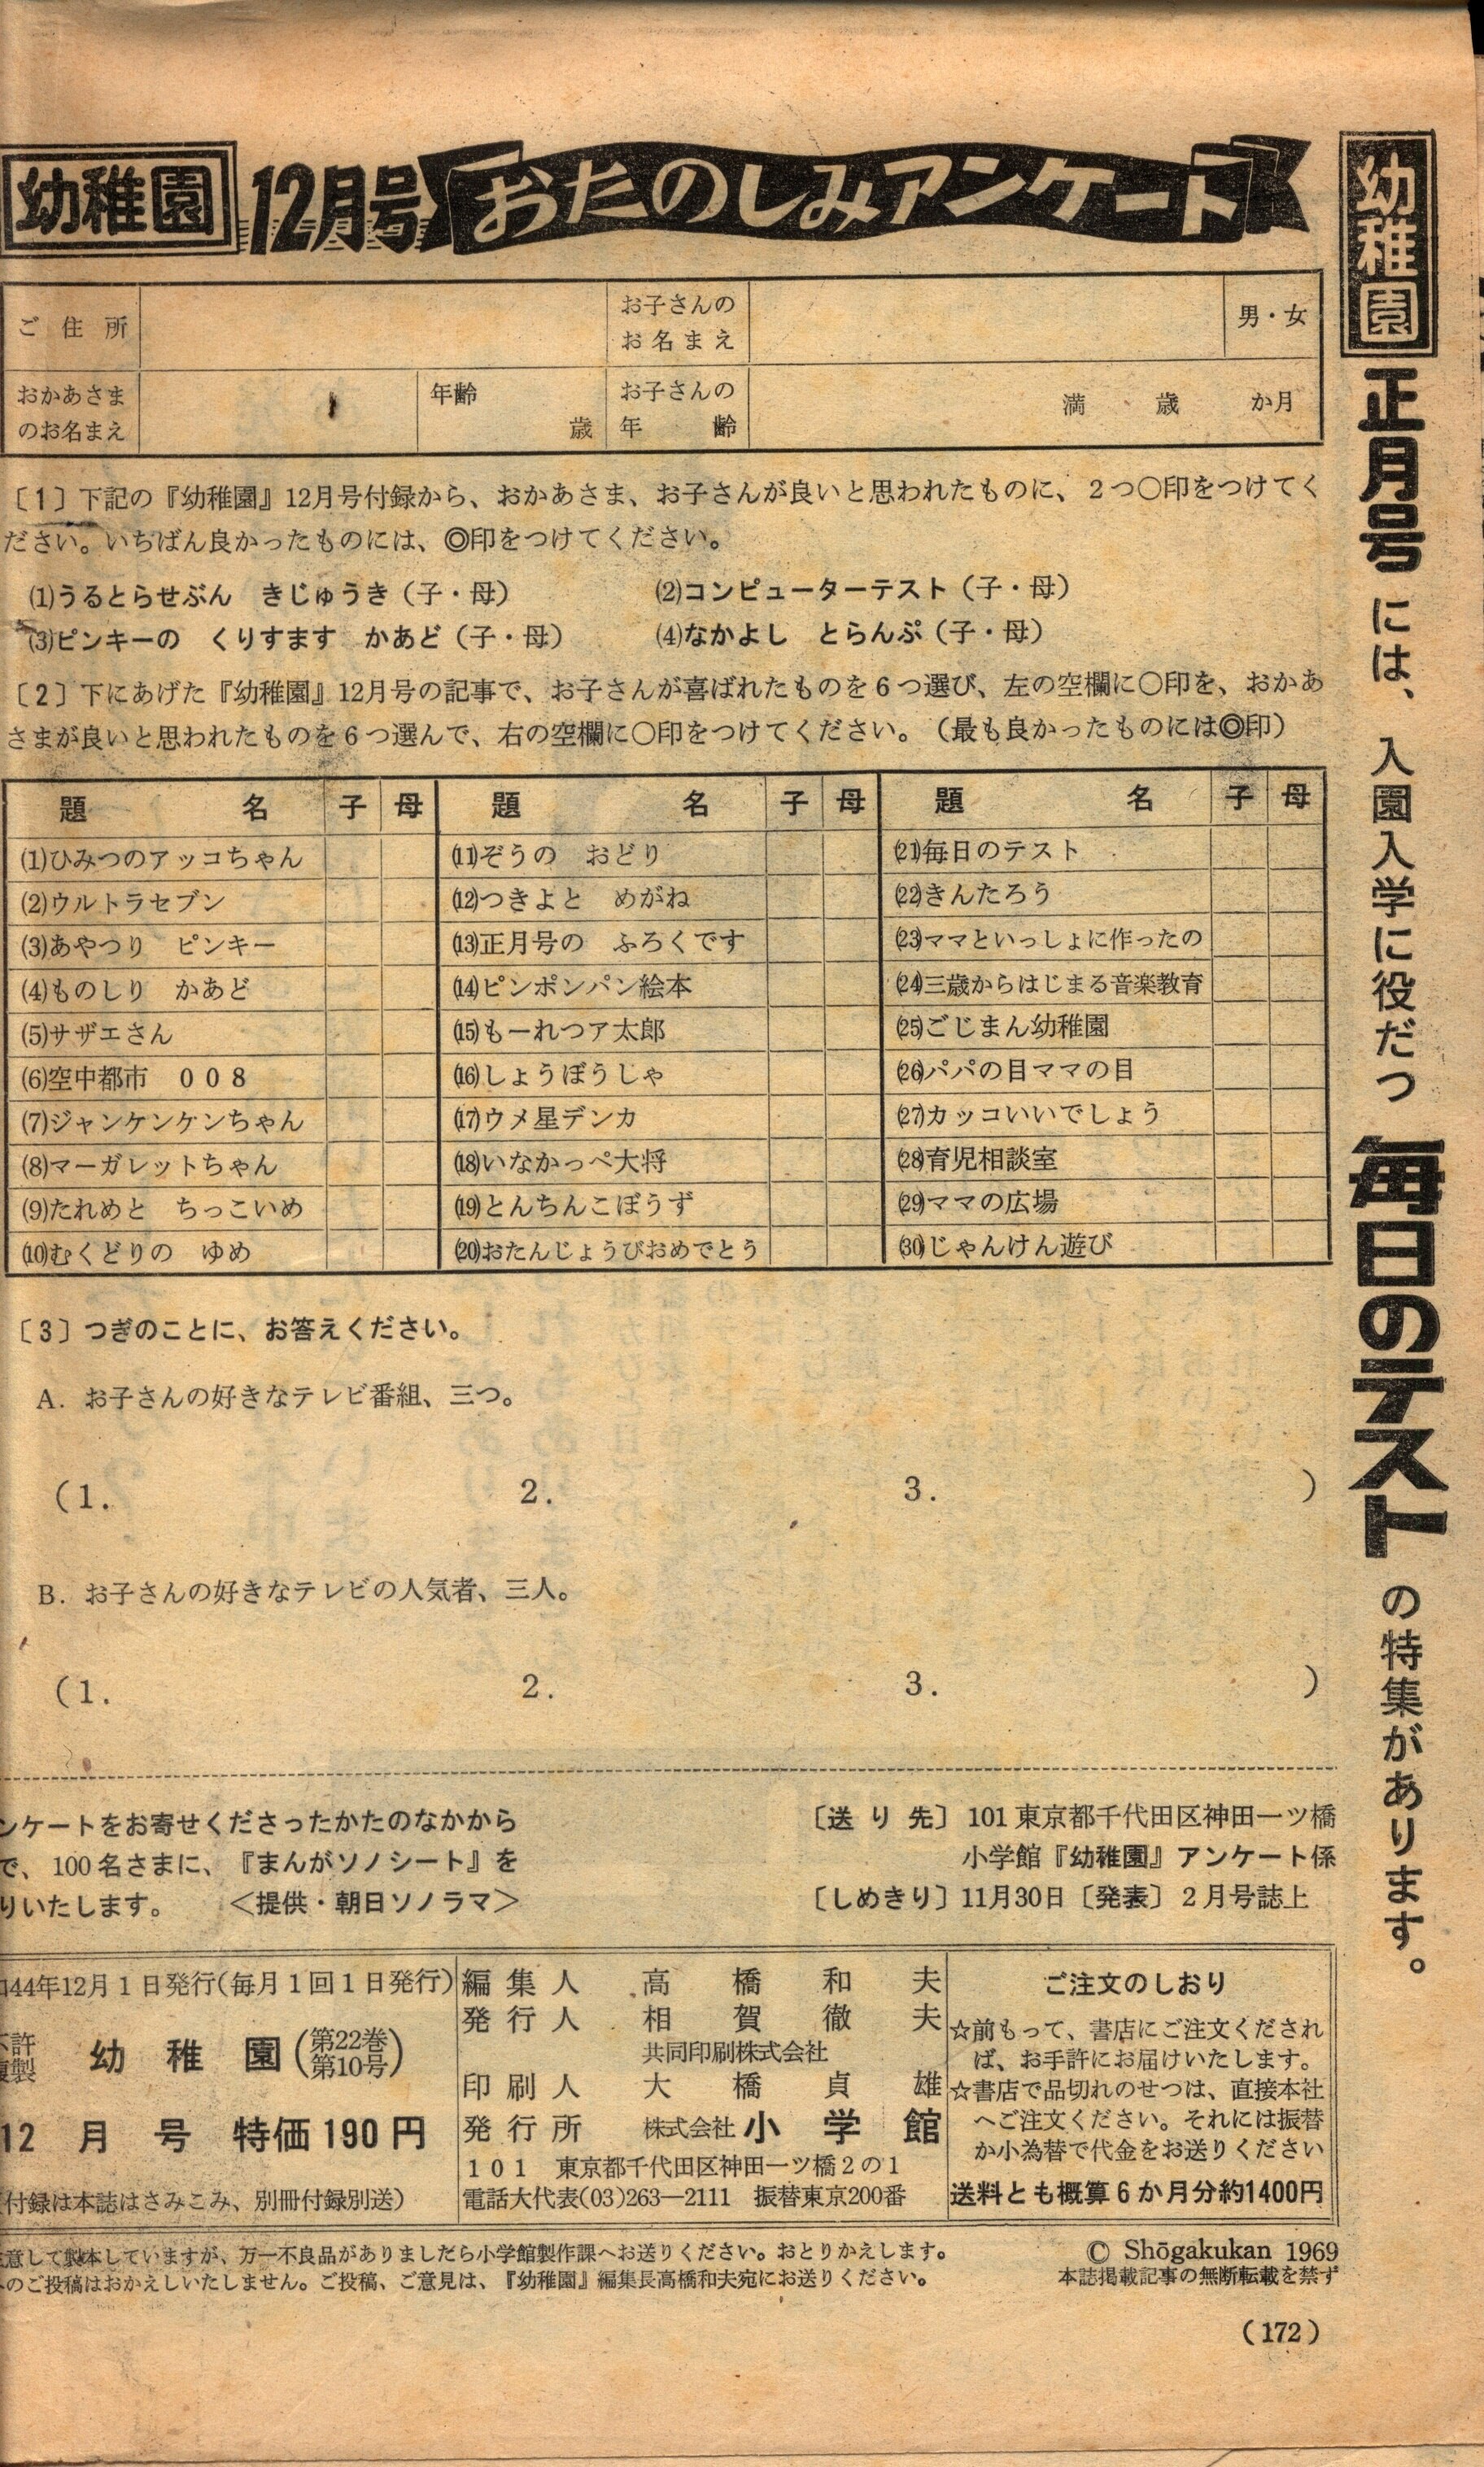 幼稚園 12月号 おたのしみアンケート
ご住所 お子さんのお名まえ 男・女
おかあさまのお名まえ 年齢 歳 お子さんの年齢 満 歳 か月
〔1〕下記の『幼稚園』12月号付録から、おかあさま、お子さんが良いと思われたものに、2つ○印をつけてく
ださい。いちばん良かったものには、◎印をつけてください。
(1)うるとらせぶん きじゅうき(子・母) (2)コンピューターテスト(子・母)
(3)ピンキーの くりすます かあど(子・母) (4)なかよし とらんぷ(子・母)
〔2〕下にあげた『幼稚園』12月号の記事で、お子さんが喜ばれたものを6つ選び、左の空欄に○印を、おかあ
さまが良いと思われたものを6つ選んで、右の空欄に○印をつけてください。(最も良かったものには◎印)
題名 子 母 題名 子 母 題名 子 母
(1)ひみつのアッコちゃん (11)ぞうの おどり (21)毎日のテスト
(2)ウルトラセブン (12)つきよと めがね (22)きんたろう
(3)あやつり ピンキー (13)正月号の ふろくです (23)ママといっしょに作ったの
(4)ものしり かあど (14)ピンポンパン絵本 (24)三歳からはじまる音楽教育
(5)サザエさん (15)もーれつア太郎 (25)ごじまん幼稚園
(6)空中都市 008 (16)しょうぼうじゃ (26)パパの目ママの目
(7)ジャンケンケンちゃん (17)ウメ星デンカ (27)カッコいいでしょう
(8)マーガレットちゃん (18)いなかっぺ大将 (28)育児相談室
(9)たれめと ちっこいめ (19)とんちんこぼうず (29)ママの広場
(10)むくどりの ゆめ (20)おたんじょうびおめでとう (30)じゃんけん遊び
〔3〕つぎのことに、お答えください。
A. お子さんの好きなテレビ番組、三つ。
(1. 2. 3. )
B. お子さんの好きなテレビの人気者、三人。
(1. 2. 3. )
ンケートをお寄せくださったかたのなかから
で、100名さまに、『まんがソノシート』を
りいたします。 <提供・朝日ソノラマ>
〔送り先〕101 東京都千代田区神田一ツ橋
小学館『幼稚園』アンケート係
〔しめきり〕11月30日〔発表〕2月号誌上
44年12月1日発行(毎月1回1日発行)
不許複製 幼稚園(第22巻第10号)
12月号 特価190円
付録は本誌はさみこみ、別冊付録別送)
編集人 高橋和夫
発行人 相賀徹夫
共同印刷株式会社
印刷人 大橋貞雄
発行所 株式会社 小学館
101 東京都千代田区神田一ツ橋2の1
電話大代表(03)263—2111 振替東京200番
ご注文のしおり
☆前もって、書店にご注文くだされ
ば、お手許にお届けいたします。
☆書店で品切れのせつは、直接本社
へご注文ください。それには振替
か小為替で代金をお送りください
送料とも概算6か月分約1400円
意して製本していますが、万一不良品がありましたら小学館製作課へお送りください。おとりかえします。
のご投稿はおかえしいたしません。ご投稿、ご意見は、『幼稚園』編集長高橋和夫宛にお送りください。
© Shōgakukan 1969
本誌掲載記事の無断転載を禁ず
(172)
幼稚園 正月号 には、入園入学に役だつ 毎日のテスト の特集があります。